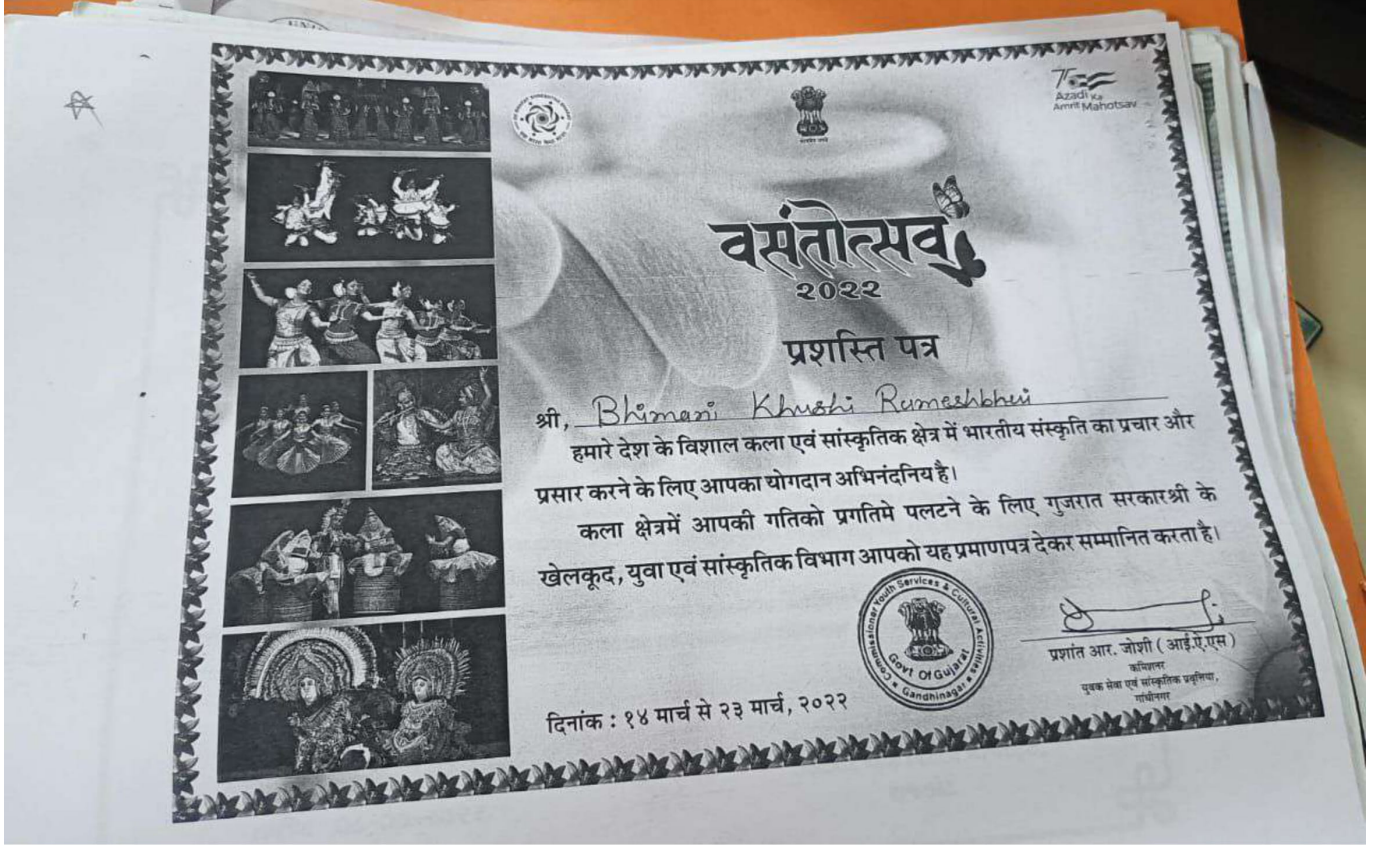 75
Azadi Ka
Amrit Mahotsav
सत्यमेव जयते
वसंतोत्सव
२०२२
प्रशस्ति पत्र
श्री, Bhimani Khushi Rameshbhai
हमारे देश के विशाल कला एवं सांस्कृतिक क्षेत्र में भारतीय संस्कृति का प्रचार और
प्रसार करने के लिए आपका योगदान अभिनंदनिय है।
कला क्षेत्रमें आपकी गतिको प्रगतिमे पलटने के लिए गुजरात सरकारश्री के
खेलकूद, युवा एवं सांस्कृतिक विभाग आपको यह प्रमाणपत्र देकर सम्मानित करता है।
Commissioner Youth Services & Cultural Activities
Govt Of Gujarat
Gandhinagar
प्रशांत आर. जोशी ( आई.ऐ.एस )
कमिशनर
युवक सेवा एवं सांस्कृतिक प्रवृत्तिया,
गांधीनगर
दिनांक : १४ मार्च से २३ मार्च, २०२२